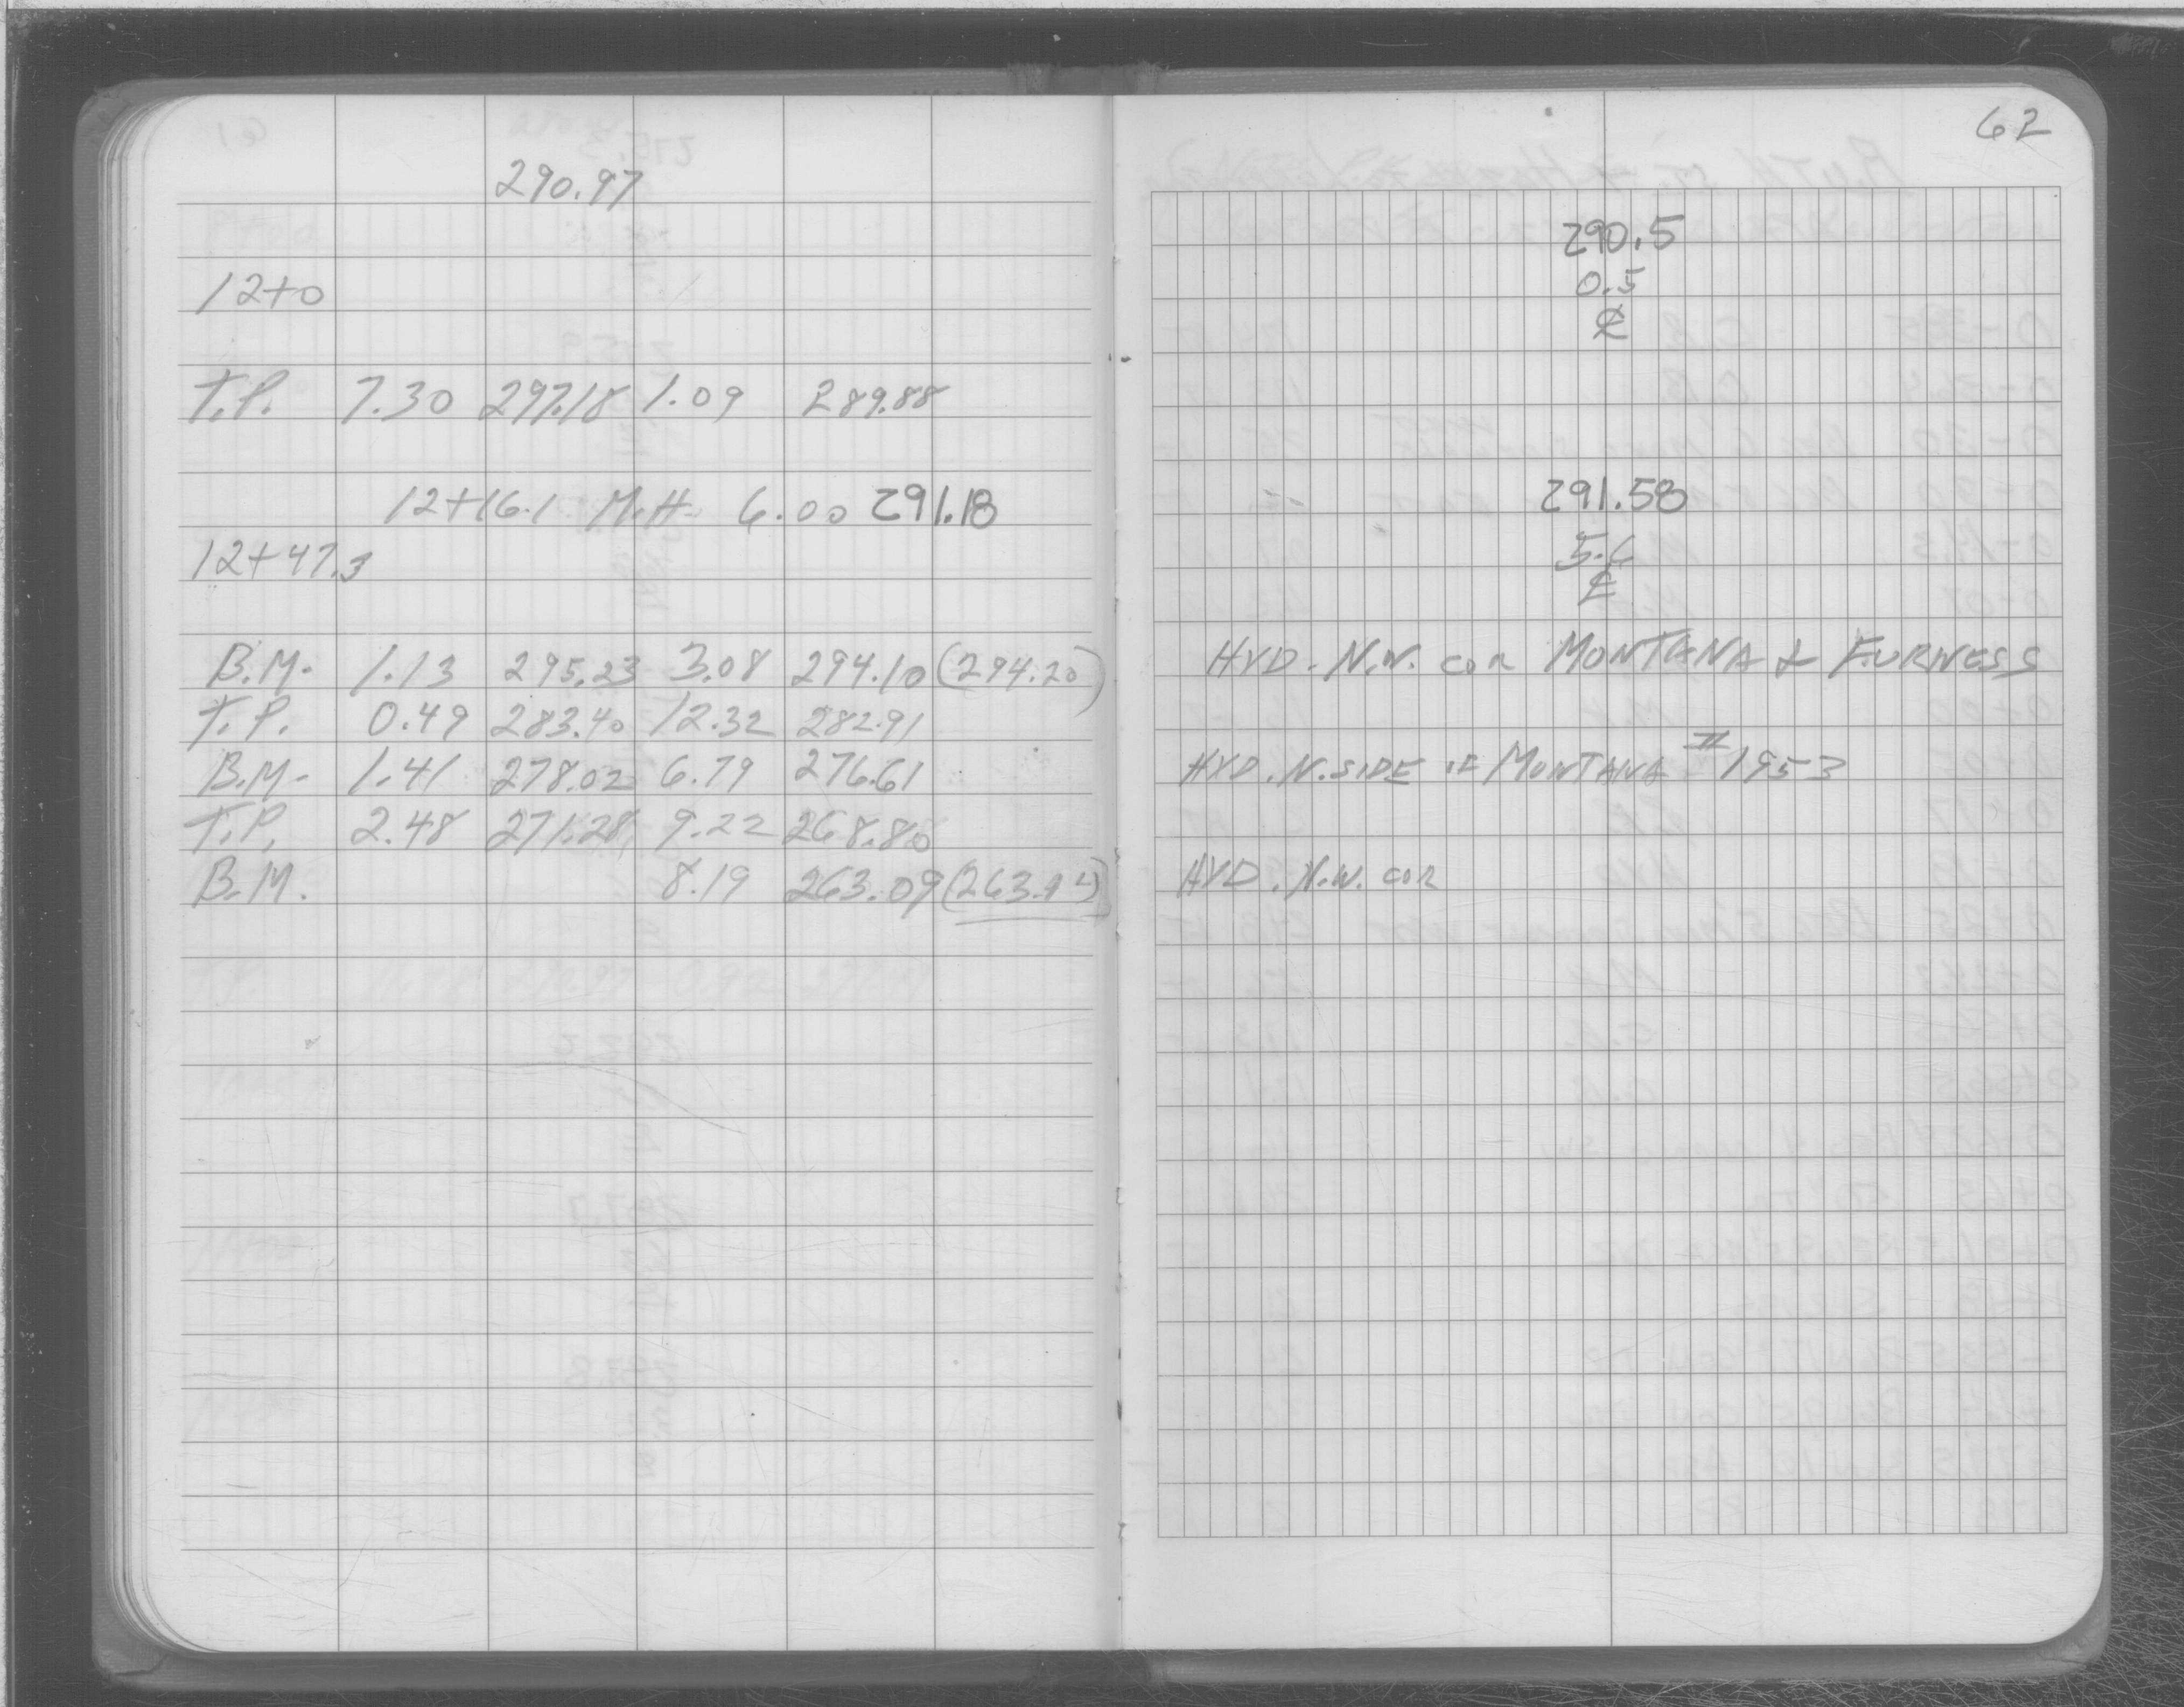 62
290.97
290.5
12+0 0.5
℄
T.P. 7.30 297.18 1.09 289.88
12+16.1 M.H. 6.00 291.18 291.58
12+47.3 5.6
℄
B.M. 1.13 295.23 3.08 294.10 (294.20) HYD. N.W. COR MONTANA & FURNESS
T.P. 0.49 283.40 12.32 282.91
B.M. 1.41 278.02 6.79 276.61 HYD. N. SIDE OF MONTANA #1953
T.P. 2.48 271.28 9.22 268.80
B.M. 8.19 263.09 HYD. N.W. COR